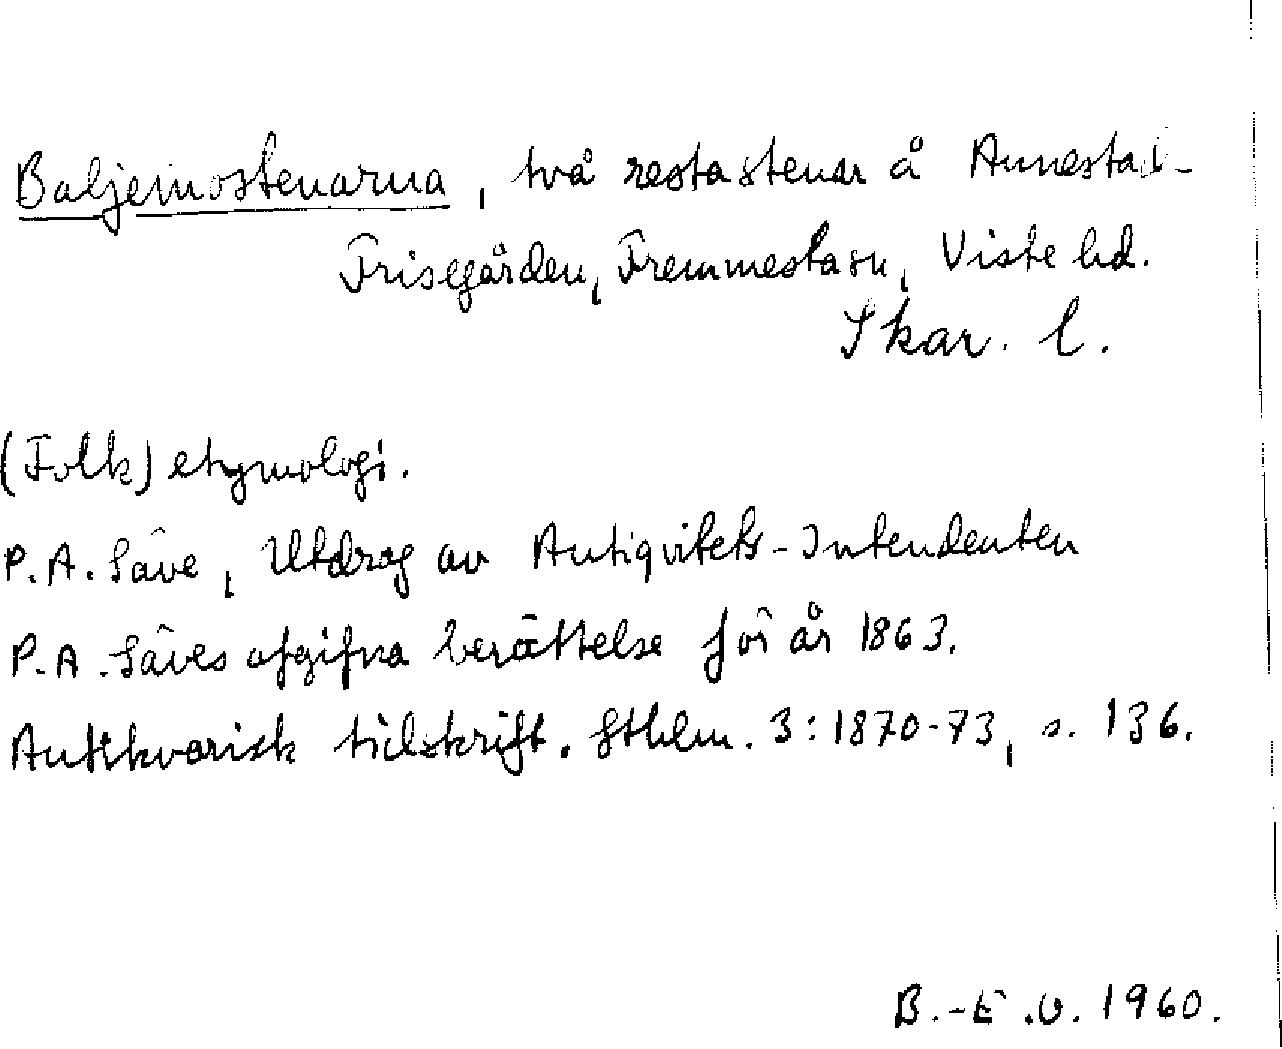 Baljemostenarna, två resta stenar å Annestad-
Frisegården, Fremmestasn, Viste hd.
Skar. l.
(Folk) etymologi.
P.A. Säve, Utdrag av Antiqvitets-Intendenten
P.A. Säves afgifna berättelse för år 1863.
Antikvarisk tidskrift. Sthlm. 3:1870-73, s. 136.
B.-E.O. 1960.